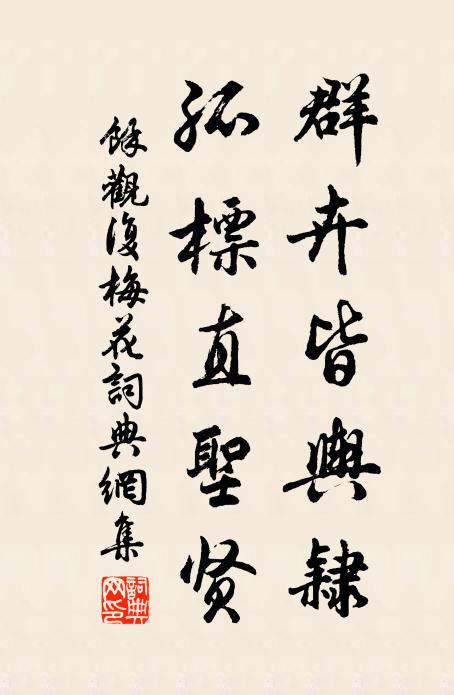 群卉皆輿隸
孤標直聖贤
餘觀復梅花詞典網集
詞典網印